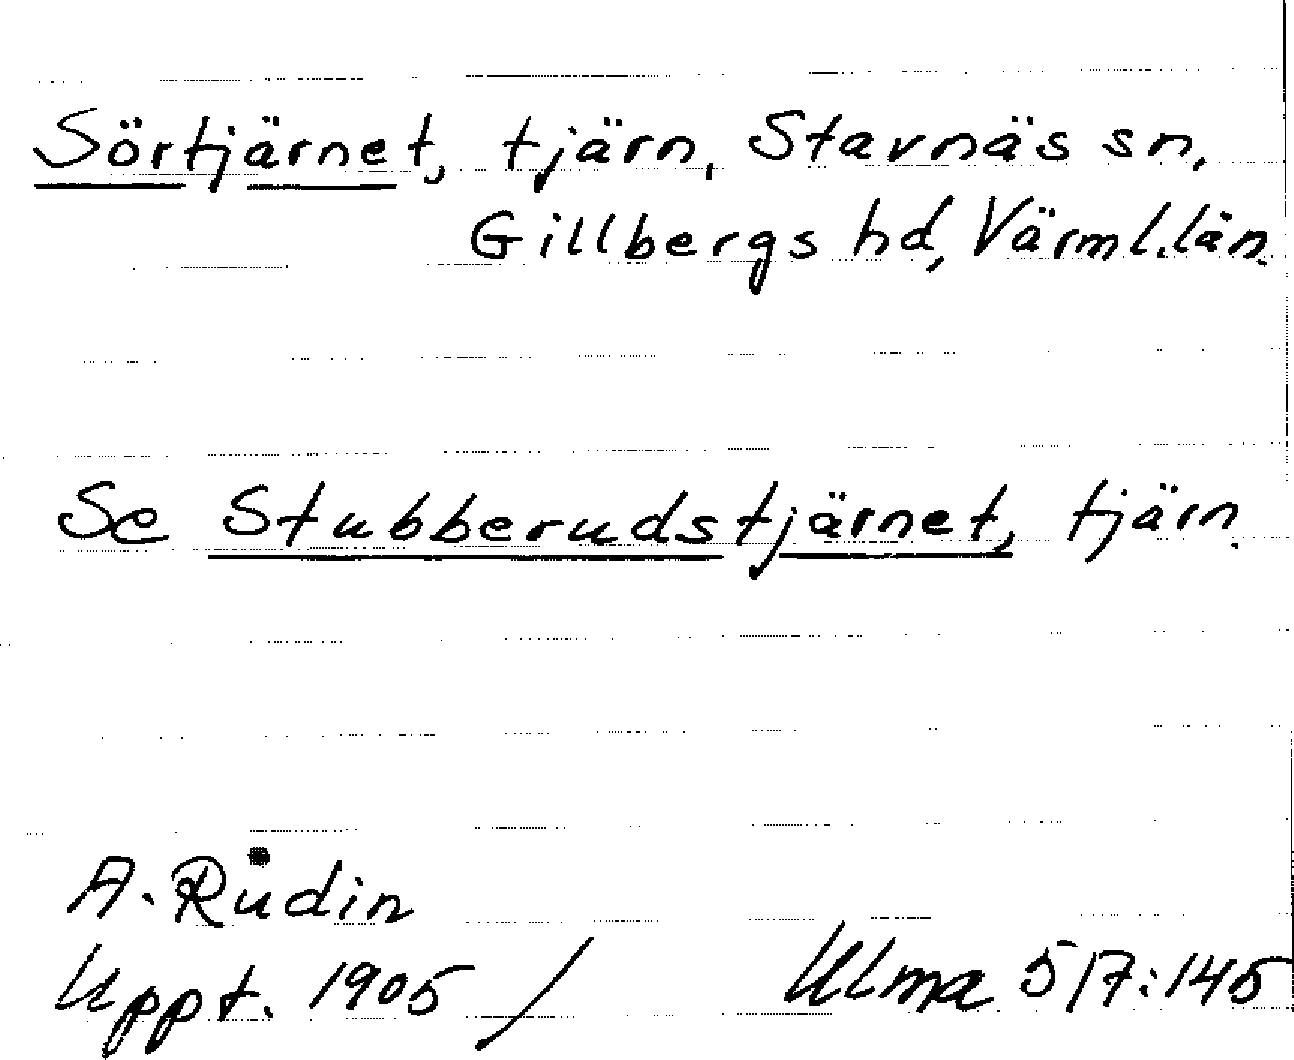 Sörtjärnet, tjärn, Stavnäs sn,
Gillbergs hd, Värml. län.
Se Stubberudstjärnet, tjärn.
A. Rüdin
Uppt. 1905 / Ulma 517:145